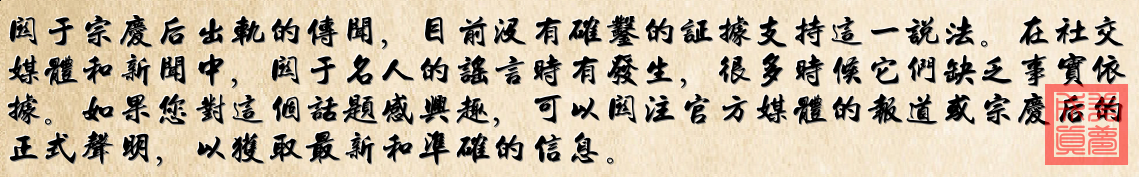 関于宗慶后出軌的傳聞，目前沒有確鑿的証據支持這一說法。在社交
媒體和新聞中，関于名人的謠言時有發生，很多時候它們缺乏事實依
據。如果您對這個話題感興趣，可以関注官方媒體的報道或宗慶后的
正式聲明，以獲取最新和準確的信息。